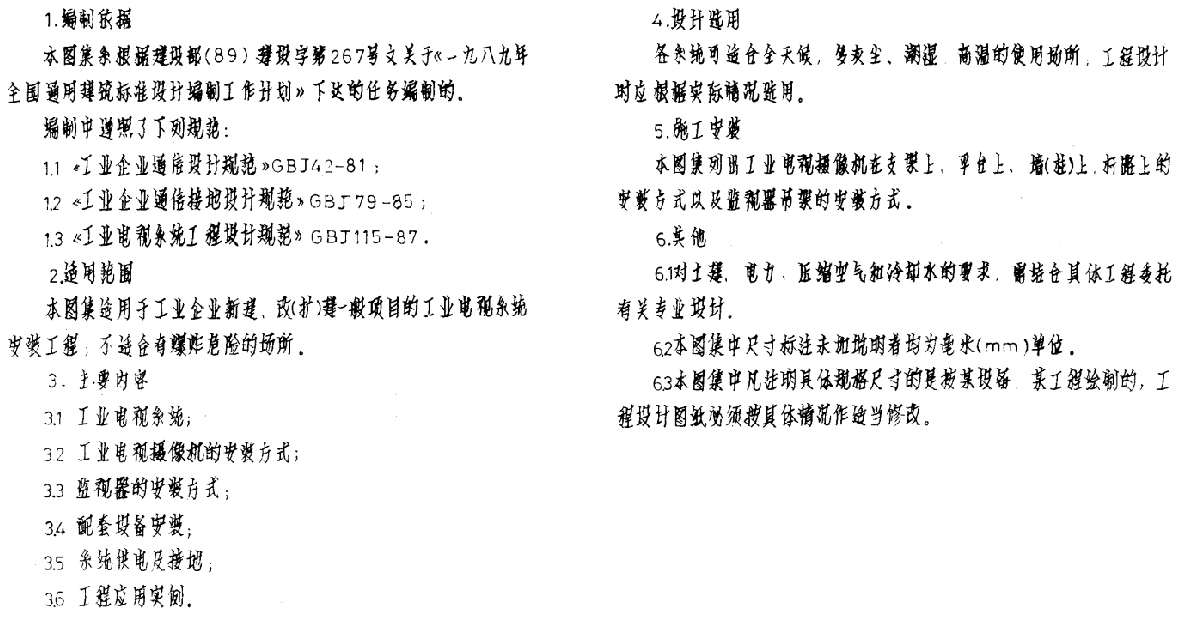 1.编制依据
本图集系根据建设部(89)建设字第267号文关于《一九八九年
全国通用建筑标准设计编制工作计划》下达的任务编制的。
编制中遵照了下列规范：
1.1 《工业企业通信设计规范》GBJ42-81；
1.2 《工业企业通信接地设计规范》GBJ79-85；
1.3 《工业电视系统工程设计规范》GBJ115-87.
2.适用范围
本图集适用于工业企业新建、改(扩)建一般项目的工业电视系统
安装工程；不适合有爆炸危险的场所。
3. 主要内容
3.1 工业电视系统；
3.2 工业电视摄像机的安装方式；
3.3 监视器的安装方式；
3.4 配套设备安装；
3.5 系统供电及接地；
3.6 工程应用实例.
4.设计选用
各系统可适合全天候，多灰尘、潮湿、高温的使用场所，工程设计
时应根据实际情况选用。
5.施工安装
本图集列出工业电视摄像机在支架上、平台上、墙(柱)上、杆路上的
安装方式以及监视器吊架的安装方式.
6.其他
6.1对土建、电力、压缩空气和冷却水的要求，需结合具体工程委托
有关专业设计.
6.2本图集中尺寸标注未加说明者均为毫米(mm)单位.
6.3本图集中凡注明具体规格尺寸的是按某设备、某工程绘制的，工
程设计图纸必须按具体情况作适当修改。